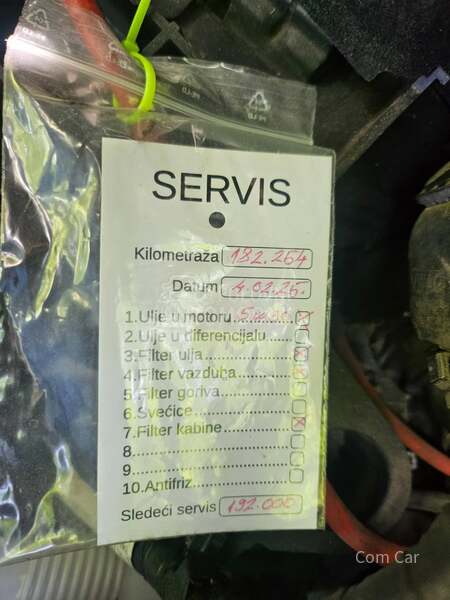 SERVIS
Kilometraža 182.264
Datum 4.02.25.
1.Ulje u motoru
2.Ulje u diferencijalu
3.Filter ulja
4.Filter vazduha
5.Filter goriva
6.Svećice
7.Filter kabine
8
9
10.Antifriz
Sledeći servis 192.000
Com Car